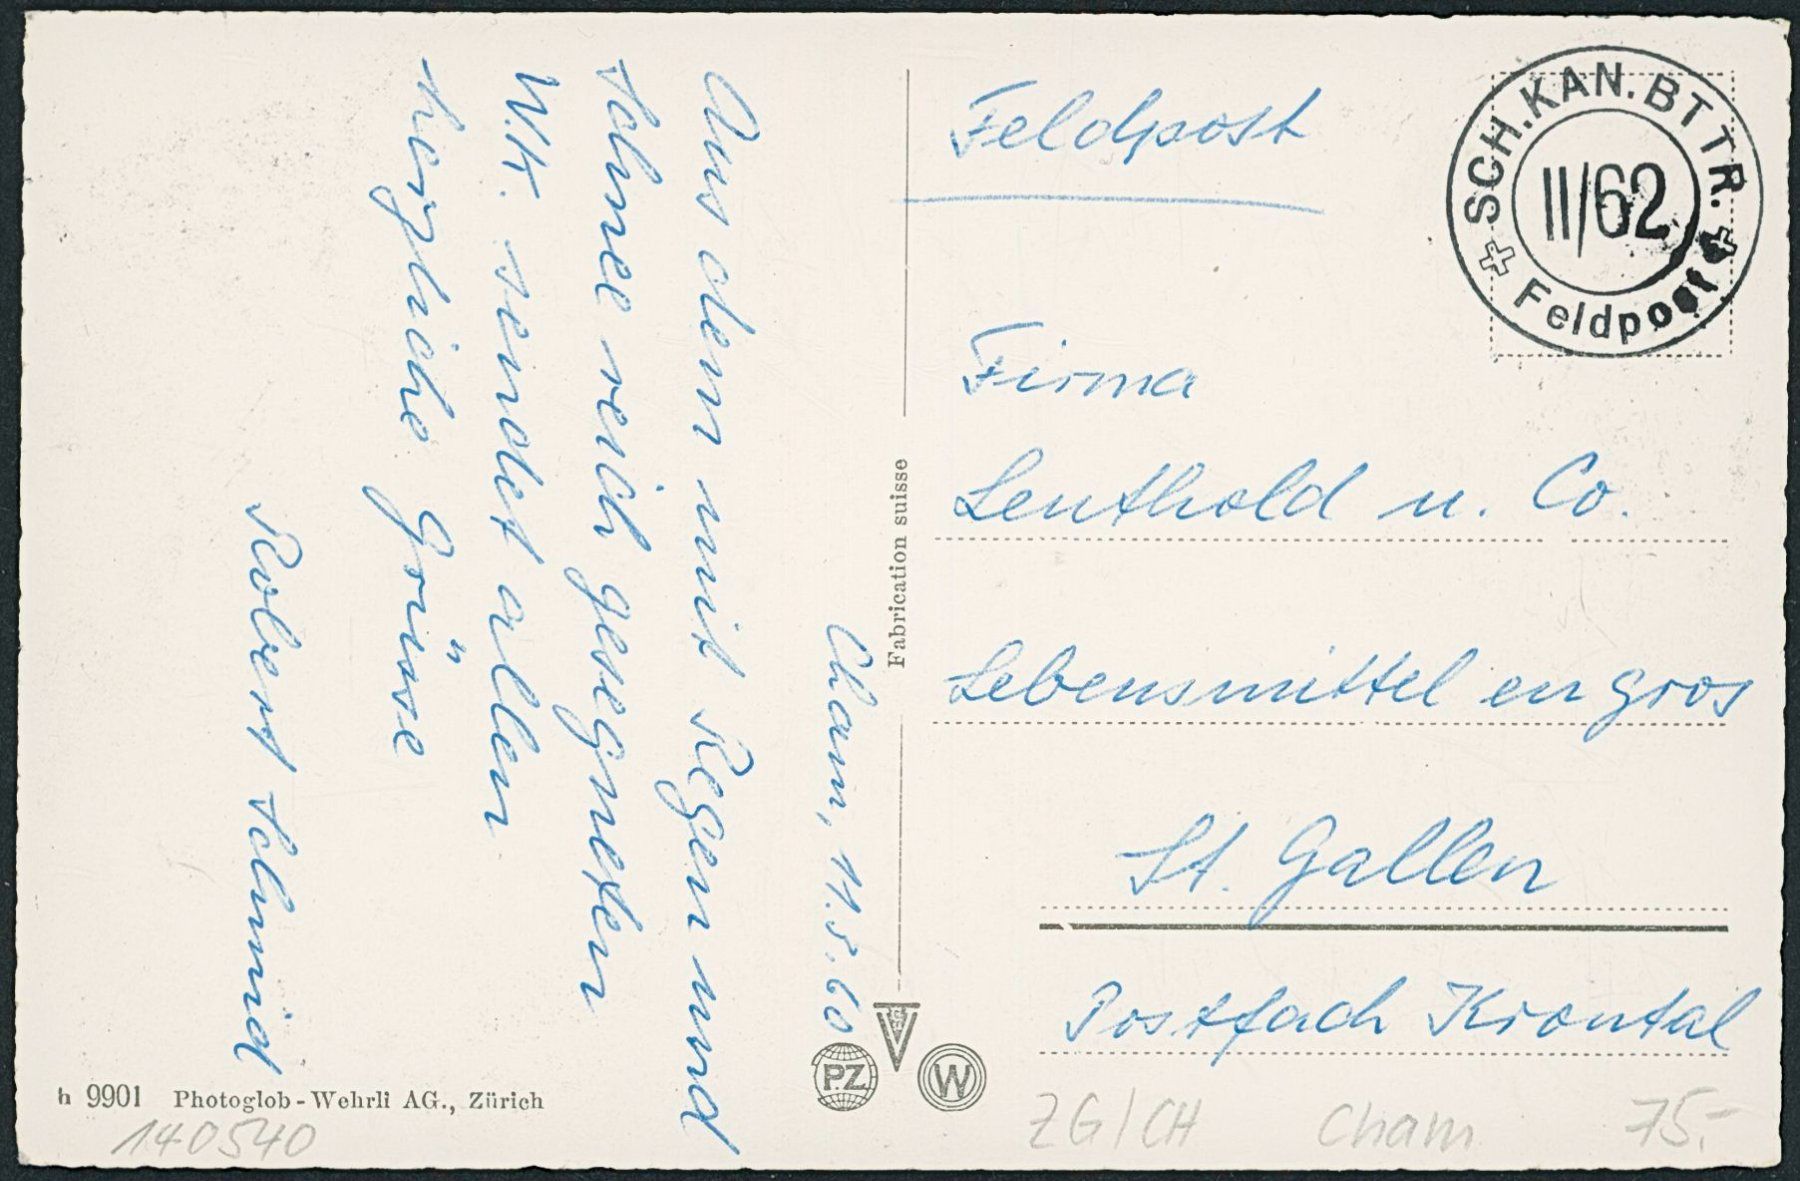 Aus dem mit Regen und
Schnee reich gesegneten
W.K. sendet allen
herzliche Grüsse
Robert Schmid
Cham, 11.3.60
Fabrication suisse
h 9901 Photoglob-Wehrli AG., Zürich
140540
PZ
W
Feldpost
SCH.KAN.BTTR.
II/62
Feldpost
Firma
Leuthold u. Co.
Lebensmittel en gros
St. Gallen
Postfach Krontal
ZG/CH Cham 75.-